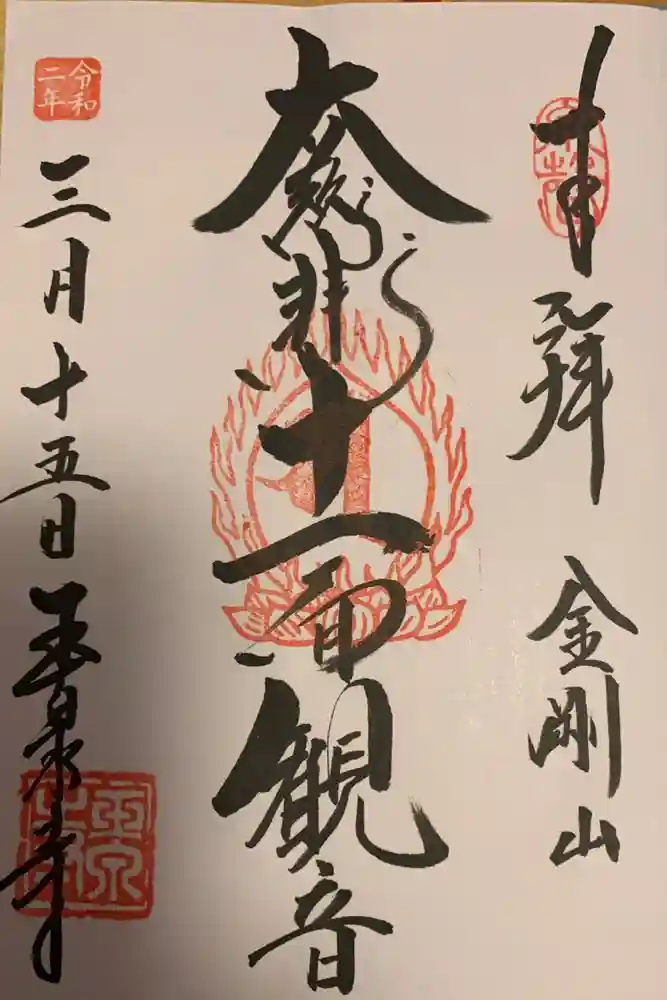 奉拝
金剛山
大慈悲十一面観音
令和二年
三月十五日
玉泉寺